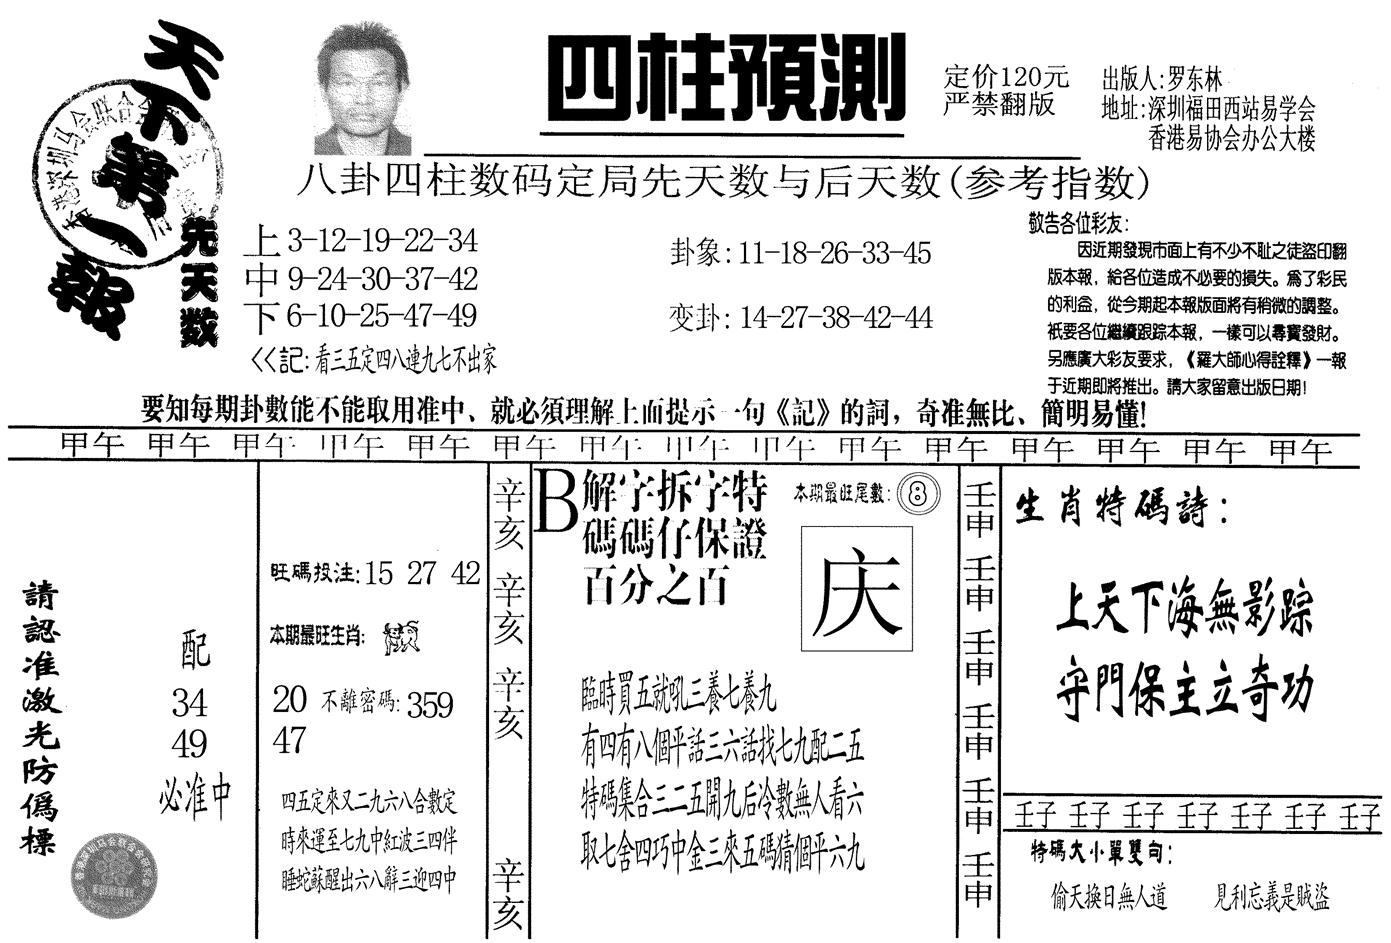 天下第一報
先天数
四柱預測
定价120元
严禁翻版
出版人:罗东林
地址:深圳福田西站易学会
香港易协会办公大楼
八卦四柱数码定局先天数与后天数(参考指数)
上 3-12-19-22-34
中 9-24-30-37-42
下 6-10-25-47-49
<<記:看三五定四八連九七不出家
卦象:11-18-26-33-45
变卦:14-27-38-42-44
敬告各位彩友:
因近期發現市面上有不少不耻之徒盜印翻
版本報，給各位造成不必要的損失。爲了彩民
的利益，從今期起本報版面將有稍微的調整。
衹要各位繼續跟踪本報，一樣可以尋寶發財。
另應廣大彩友要求，《羅大師心得詮釋》一報
于近期即將推出。請大家留意出版日期!
要知每期卦數能不能取用准中、就必須理解上面提示一句《記》的詞，奇准無比、簡明易懂!
甲午 甲午 甲午 甲午 甲午 甲午 甲午 甲午 甲午 甲午 甲午 甲午 甲午 甲午 甲午
請認准激光防僞標
配
34
49
必准中
旺碼投注:15 27 42
本期最旺生肖:
20 不離密碼:359
47
四五定來又二九六八合數定
時來運至七九中紅波三四伴
睡蛇蘇醒出六八辭三迎四中
辛亥 辛亥 辛亥 辛亥
B
解字拆字特
碼碼仔保證
百分之百
本期最旺尾數:8
庆
臨時買五就吼三養七養九
有四有八個平話三六話找七九配二五
特碼集合三二五開九后冷數無人看六
取七舍四巧中金三來五碼猜個平六九
壬申 壬申 壬申 壬申 壬申 壬申
生肖特碼詩:
上天下海無影踪
守門保主立奇功
壬子 壬子 壬子 壬子 壬子 壬子 壬子
特碼大小單雙句:
偷天換日無人道 見利忘義是賊盜